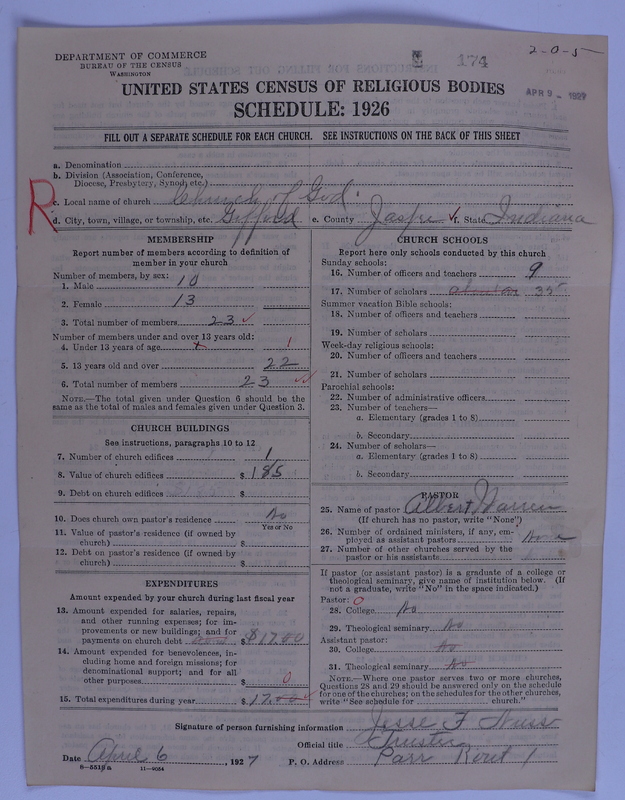 DEPARTMENT OF COMMERCE
BUREAU OF THE CENSUS
WASHINGTON
174
2-0-5
APR 9 - 1927
UNITED STATES CENSUS OF RELIGIOUS BODIES
SCHEDULE: 1926
FILL OUT A SEPARATE SCHEDULE FOR EACH CHURCH. SEE INSTRUCTIONS ON THE BACK OF THIS SHEET
a. Denomination
b. Division (Association, Conference,
Diocese, Presbytery, Synod, etc.)
R
c. Local name of church Church of God.
d. City, town, village, or township, etc. Gifford e. County Jasper f. State Indiana
MEMBERSHIP
Report number of members according to definition of
member in your church
Number of members, by sex:
1. Male 10
2. Female 13
3. Total number of members 23
Number of members under and over 13 years old:
4. Under 13 years of age x 1
5. 13 years old and over 22
6. Total number of members 23
NOTE.—The total given under Question 6 should be the
same as the total of males and females given under Question 3.
CHURCH BUILDINGS
See instructions, paragraphs 10 to 12
7. Number of church edifices 1
8. Value of church edifices $185
9. Debt on church edifices $
10. Does church own pastor's residence No
Yes or No
11. Value of pastor's residence (if owned by
church) $
12. Debt on pastor's residence (if owned by
church) $
EXPENDITURES
Amount expended by your church during last fiscal year
13. Amount expended for salaries, repairs,
and other running expenses; for im-
provements or new buildings; and for
payments on church debt $ $17.00
14. Amount expended for benevolences, in-
cluding home and foreign missions; for
denominational support; and for all
other purposes $ 0
15. Total expenditures during year $17.00
CHURCH SCHOOLS
Report here only schools conducted by this church
Sunday schools:
16. Number of officers and teachers 9
17. Number of scholars about 35
Summer vacation Bible schools:
18. Number of officers and teachers
19. Number of scholars
Week-day religious schools:
20. Number of officers and teachers
21. Number of scholars
Parochial schools:
22. Number of administrative officers
23. Number of teachers—
a. Elementary (grades 1 to 8)
b. Secondary
24. Number of scholars—
a. Elementary (grades 1 to 8)
b. Secondary
PASTOR
25. Name of pastor Albert Warren
(If church has no pastor, write "None")
26. Number of ordained ministers, if any, em-
ployed as assistant pastors None
27. Number of other churches served by the
pastor or his assistants
If pastor (or assistant pastor) is a graduate of a college or
theological seminary, give name of institution below. (If
not a graduate, write "No" in the space indicated.)
Pastor: 0
28. College No
29. Theological seminary No
Assistant pastor:
30. College No
31. Theological seminary No
NOTE.—Where one pastor serves two or more churches,
Questions 28 and 29 should be answered only on the schedule
for one of the churches; on the schedules for the other churches,
write "See schedule for church."
Signature of person furnishing information Jesse F Nuss
Official title Trustee
Date April 6, 1927 P. O. Address Parr Rout 1
8-5513a 11-9054